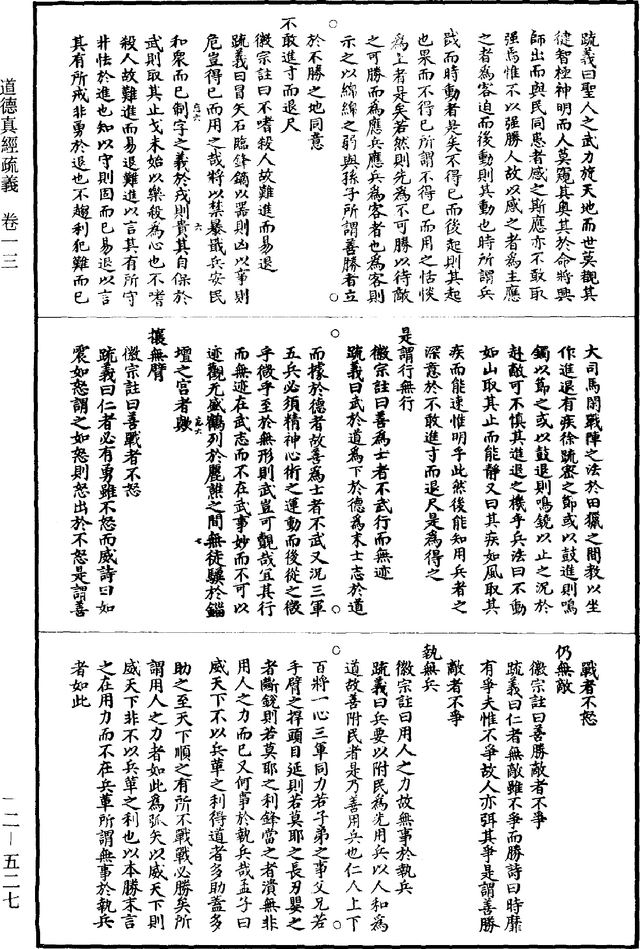 道德真經疏義 卷一三
疏義曰聖人之武力旋天地而世莫觀其
健智極神明而人莫窺其奧其於命將興
師出而與民同患者感之斯應亦不敢取
强焉惟不以强勝人故以感之者為主應
之者為客迫而後動則其動也時所謂兵
戢而時動者是矣不得已而後起則其起
也果而不得已所謂不得已而用之恬惔
為上者是矣若然則先為不可勝以待敵
之可勝而為應兵應兵為客者也為客則
示之以綿綿之弱與孫子所謂善勝者立
於不勝之地同意
不敢進寸而退尺
徽宗註曰不嗜殺人故難進而易退
疏義曰冒矢石臨鋒鏑以器則凶以事則
危豈得已而用之哉將以禁暴戢兵安民
和衆而已制字之義於戎則貴其自保於
武則取其止戈未始以樂殺為心也不嗜
殺人故難進而易退難進以言其有所守
非怯於進也知以守則固而已易退以言
其有所戒非勇於退也不趨利犯難而已
大司馬閱戰陣之法於田獵之間教以坐
作進退有疾徐疏密之節或以鼓進則鳴
鐲以節之或以鼓退則鳴鐃以止之況於
赴敵可不慎其進退之機乎兵法曰不動
如山取其止而能靜又曰其疾如風取其
疾而能速惟明乎此然後能知用兵者之
深意於不敢進寸而退尺是為得之
是謂行無行
徽宗註曰善為士者不武行而無迹
疏義曰武於道為下於德為末士志於道
而據於德者故善為士者不武又況三軍
五兵必須精神心術之運動而後從之微
乎微乎至於無形則武豈可觀哉宜其行
而無迹在武志而不在武事妙而不可以
迹觀无盛鶴列於麗譙之間無徒驥於錙
壇之宮者歟
攘無臂
徽宗註曰善戰者不怒
疏義曰仁者必有勇雖不怒而威詩曰如
震如怒謂之如怒則怒出於不怒是謂善
戰者不怒
仍無敵
徽宗註曰善勝敵者不爭
疏義曰仁者無敵雖不爭而勝詩曰時靡
有爭夫惟不爭故人亦弭其爭是謂善勝
敵者不爭
執無兵
徽宗註曰用人之力故無事於執兵
疏義曰兵要以附民為先用兵以人和為
道故善附民者是乃善用兵也仁人上下
百將一心三軍同力若子弟之事父兄若
手臂之捍頭目延則若莫耶之長刃嬰之
者斷銳則若莫耶之利鋒當之者潰無非
用人之力而已又何事於執兵哉孟子曰
威天下不以兵革之利得道者多助蓋多
助之至天下順之有所不戰戰必勝矣所
謂用人之力者如此為弧矢以威天下則
威天下非不以兵革之利也以本勝末言
之在用力而不在兵革所謂無事於執兵
者如此
一二—五二七